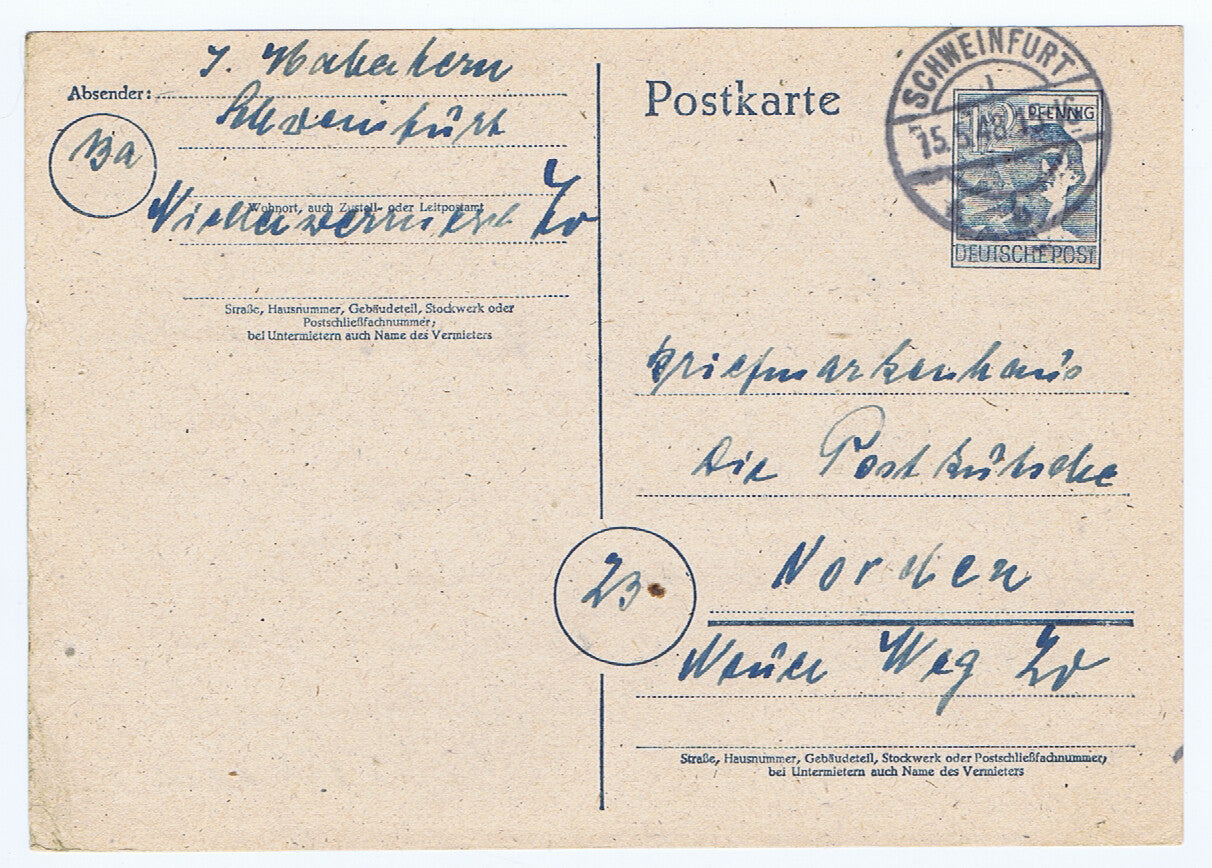 Absender:
Schweinfurt
13a
Wohnort, auch Zustell- oder Leitpostamt
20
Straße, Hausnummer, Gebäudeteil, Stockwerk oder
Postschließfachnummer;
bei Untermietern auch Name des Vermieters
Postkarte
SCHWEINFURT
1
15.5.48
b
12 PFENNIG
DEUTSCHE POST
Briefmarkenhaus
Die Postkutsche
23
Norden
Neuer Weg 20
Straße, Hausnummer, Gebäudeteil, Stockwerk oder Postschließfachnummer;
bei Untermietern auch Name des Vermieters